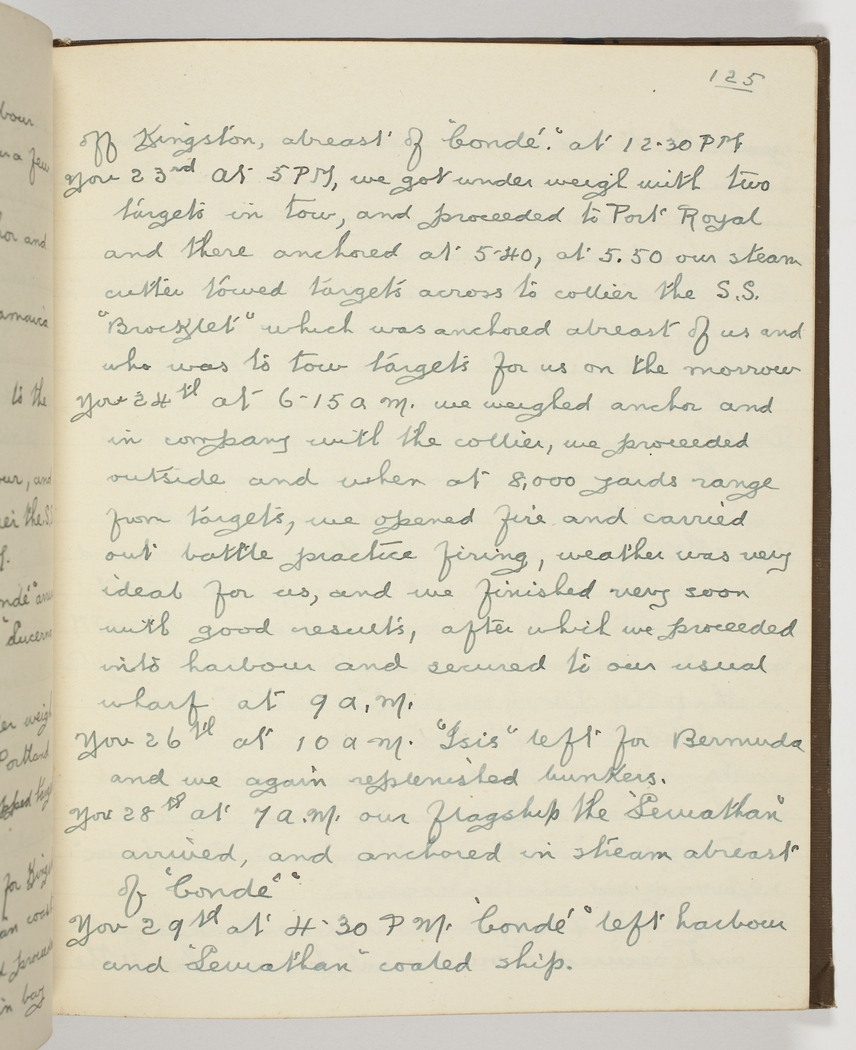 125
off Kingston, abreast of "Condé". at 12-30 PM
Nov 23rd at 5 PM, we got under weigh with two
targets in tow, and proceeded to Port Royal
and there anchored at 5-40, at 5.50 our steam
cutter towed targets across to collier the S.S.
"Brocklet" which was anchored abreast of us and
who was to tow targets for us on the morrow
Nov 24th at 6-15 a m. we weighed anchor and
in company with the collier, we proceeded
outside and when at 8,000 yards range
from targets, we opened fire and carried
out battle practice firing, weather was very
ideal for us, and we finished very soon
with good results, after which we proceeded
into harbour and secured to our usual
wharf at 9 a.m.
Nov 26th at 10 a m. "Isis" left for Bermuda
and we again replenished bunkers.
Nov 28th at 7 a.m. our flagship the "Leviathan"
arrived, and anchored in stream abreast
of "Condé"
Nov 29th at 4-30 P M. "Condé" left harbour
and "Leviathan" coaled ship.
bour
to the
our, and
ndé" an
Portland
in bay